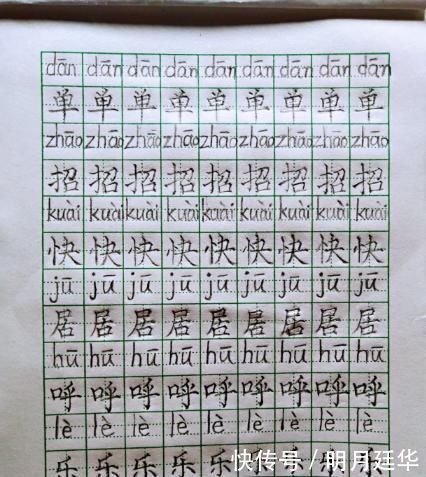 dān dān dān dān dān dān dān dān dān
单 单 单 单 单 单 单 单 单
zhāo zhāo zhāo zhāo zhāo zhāo zhāo zhāo zhāo
招 招 招 招 招 招 招 招 招
kuài kuài kuài kuài kuài kuài kuài kuài kuài
快 快 快 快 快 快 快 快 快
jū jū jū jū jū jū jū jū jū
居 居 居 居 居 居 居 居 居
hū hū hū hū hū hū hū hū hū
呼 呼 呼 呼 呼 呼 呼 呼 呼
lè lè lè lè lè lè lè lè lè
乐 乐 乐 乐 乐 乐 乐 乐 乐
快传号/明月廷华